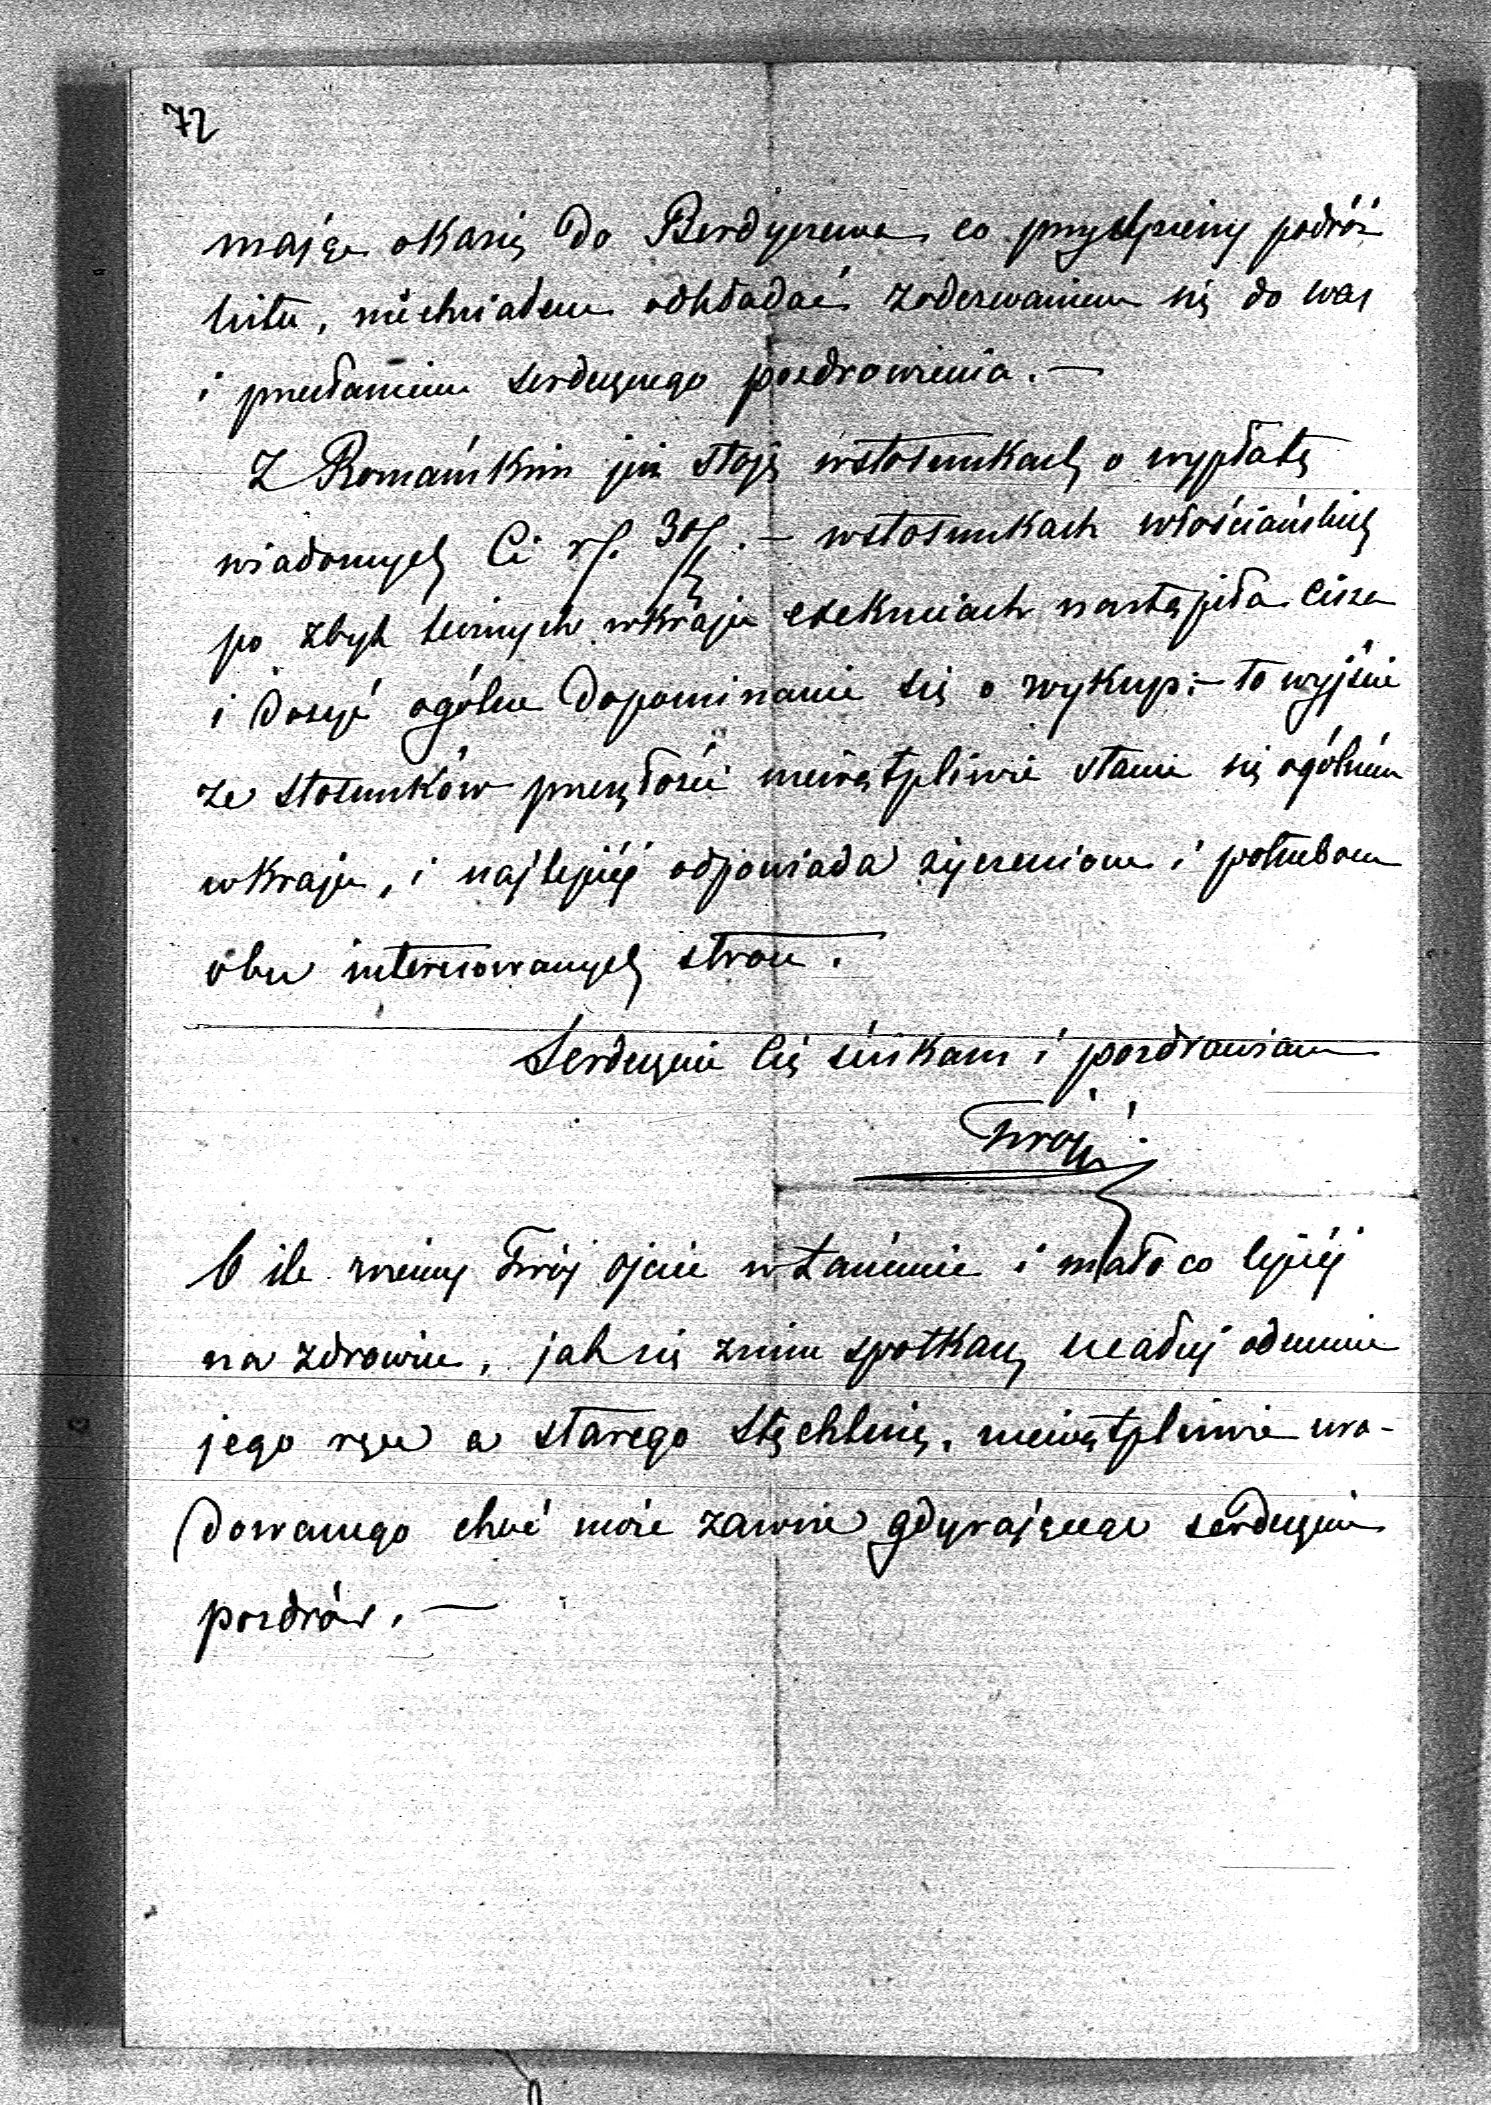 72
mając okazię do Berdyczewa, co przyspieszy podróż
listu, niechciałem odkładać zodezwaniem się do was
i przesłaniem serdecznego pozdrowienia. —
Z Romańskim już stoję wstosunkach o wypłatę
wiadomych Ci rs. — wstosunkach włościańskich
po zbyt licznych wkraju exekuciach nastąpiła cisza
i dosyć ogólne dopominanie się o wykup: — to wyjście
ze stosunków przeszłości niewątpliwie stanie się ogólném
wkraju, i najlepiéj odpowiada życzeniom i potrzebom
obu interesowanych stron.
Serdecznie Cię ściskam i pozdrawiam
Twój
O ile wiemy Twój ojciec w Łanicinie i mało co lepiéj
na zdrowiu, jak się znim spotkasz, ucałuj odemnie
jego ręce a starego niewątpliwie ura-
dowanego choć może zawsze gdyrającego serdecznie
pozdrów. —